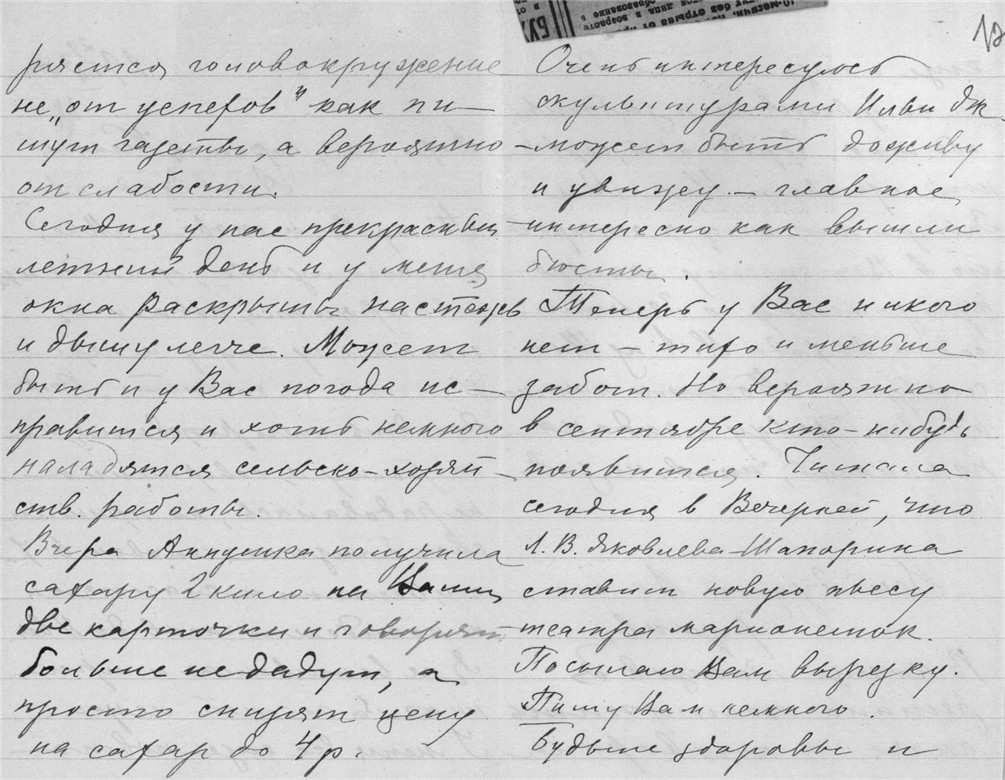 ряется головокружение
не „от успехов" как пи-
шут газеты, а вероятно
от слабости.
Сегодня у нас прекрасный
летний день и у меня
окна раскрыты настежь
и дышу легче. Может
быть и у Вас погода ис-
правится и хоть немного
наладятся сельско-хозяй-
ств. работы.
Вчера Аннушка получила
сахару 2 кило на Ваши
две карточки и говорят
больше не дадут, а
просто снизят цену
на сахар до 4 р.
12
Очень интересуюсь
скульптурами Ильи Дж.
-может быть доживу
и увижу. - главное
интересно как вышли
бюсты.
Теперь у Вас никого
нет - тихо и меньше
забот. Но вероятно
в сентябре кто-нибудь
появится. Читала
сегодня в Вечерней, что
Л. В. Яковлева-Шапорина
ставит новую пьесу
театра марионеток.
Посылаю Вам вырезку.
Пишу Вам немного.
Будьте здоровы и